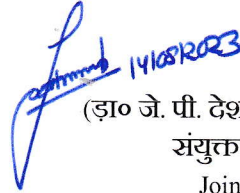 14/08/2023
(ड़ा० जे. पी. देश
संयुक्त
Join